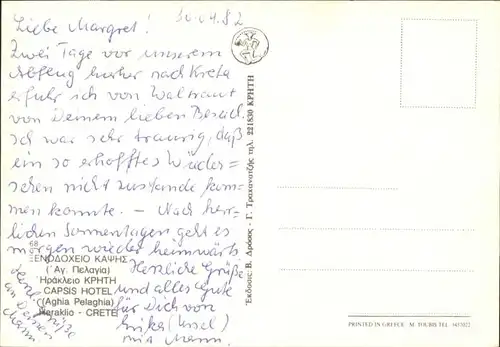 Liebe Margret! 30.04.82
Zwei Tage vor unserem
Abflug hierher nach Kreta
erfuhr ich von Waltraut
von Deinem lieben Besuch.
Ich war sehr traurig, daß
ein so erhofftes Wieder=
sehen nicht zustande kom-
men konnte. – Nach herr-
lichen Sonnentagen geht es
morgen wieder heimwärts
Herzliche Grüße
und alles Gute
für Dich von
(Insel)
mit Mann.
Herzl. Grüße
an Deinen
Mann
68
ΞΕΝΟΔΟΧΕΙΟ ΚΑΨΗΣ
('Αγ. Πελαγία)
Ηράκλειο ΚΡΗΤΗ
CAPSIS HOTEL
(Aghia Pelaghia)
Heraklio - CRETE
Έκδοσις: Β. Δρόσος - Γ. Τραχανατζής τηλ. 221830 ΚΡΗΤΗ
PRINTED IN GREECE M. TOUBIS TEL. 9473022